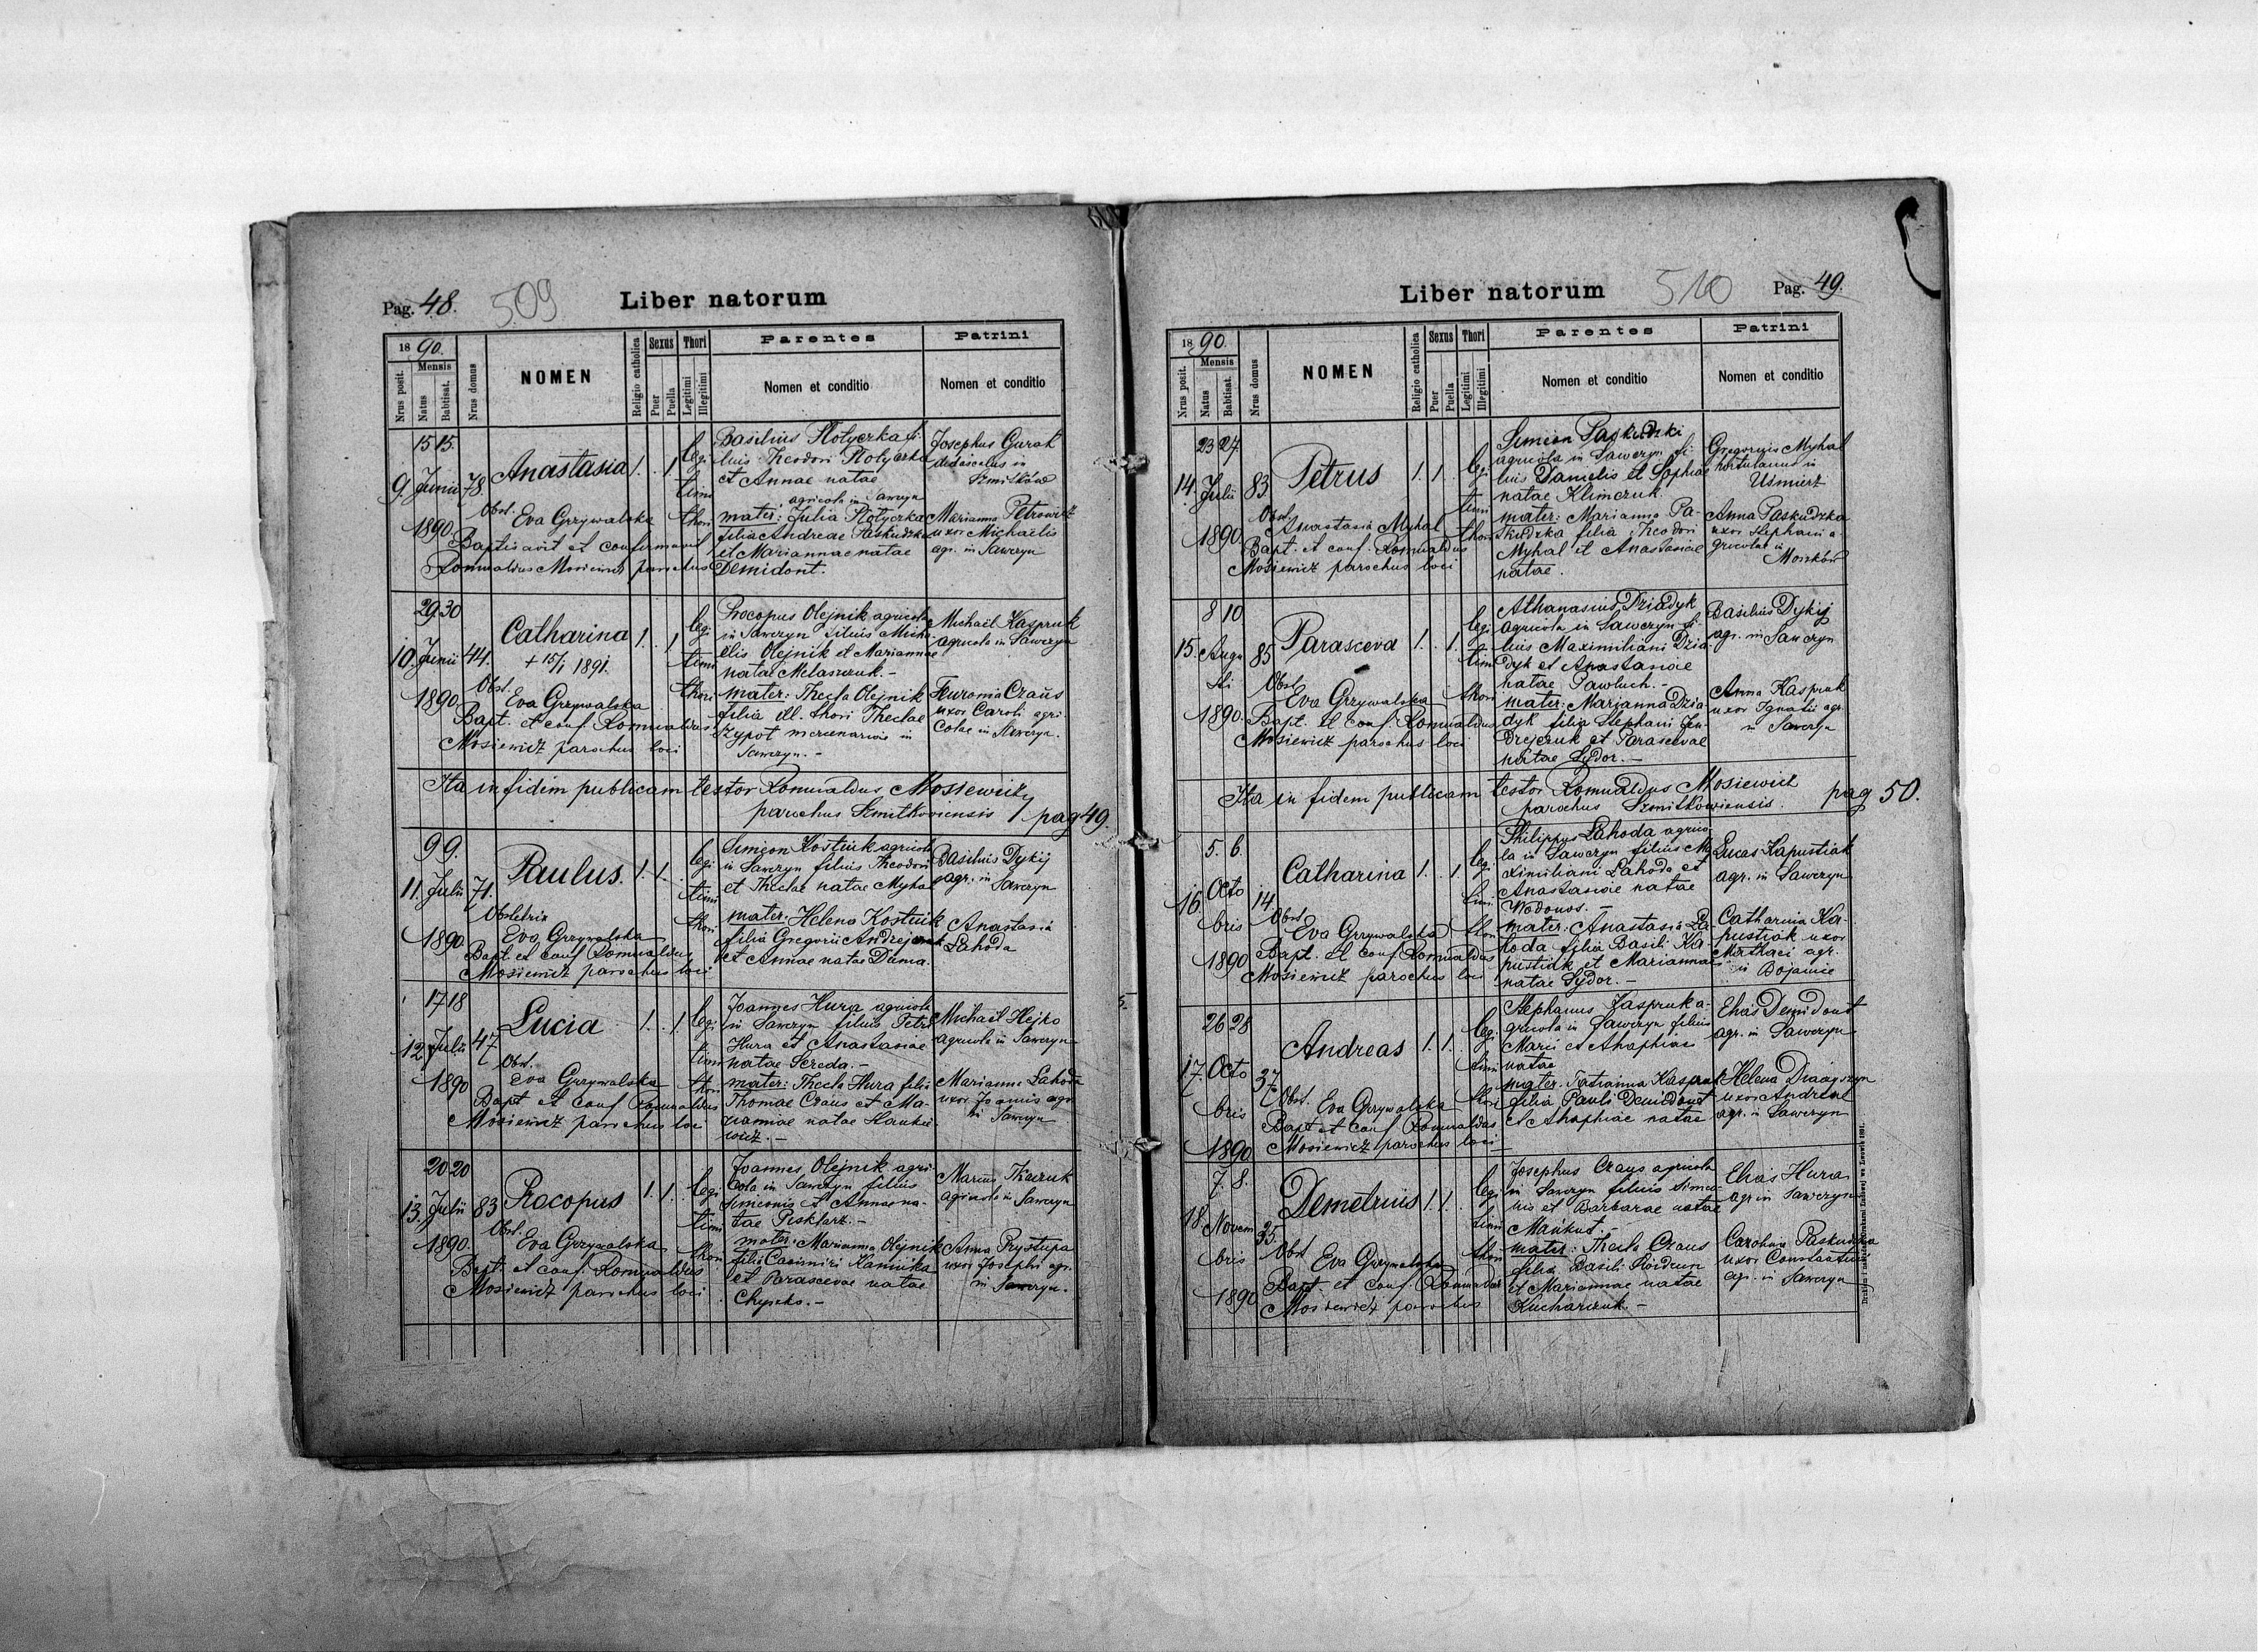 Pag. 48. 509 Liber natorum
18 90.
Nrus posit. Mensis Natus Babtisat. Nrus domus NOMEN Religio catholica Sexus Puer Puella Thori Legitimi Illegitimi Parentes Nomen et conditio Patrini Nomen et conditio
9. 15 15. Junii 1890 78. Anastasia 1. 1 legi timi thori
Obst. Eva Grzywalska
Baptisavit et confirmavit
Romualdus Mosiewicz parochus
Basilius Stolyczka fi-
lius Theodori Stolyczka
et Annae natae
agricola in Sawczyn
mater: Julia Stolyczka
filia Andreae Paskudzka
et Mariannae natae
Demidont.
Josephus Gurak
didascalus in
Szmitków
Marianna Petrowicz
uxor Michaelis
agr. in Sawczyn
10. 29 30 Junii 1890 44. Catharina 1. 1 legi timi thori
+ 15/1 1891.
Obst. Eva Grzywalska
Bapt. et conf. Romualdus
Mosiewicz parochus loci
Procopus Olejnik agricola
in Sawczyn filius Micha-
elis Olejnik et Mariannae
natae Melaszczuk.-
mater: Thecla Olejnik
filia ill. thori Theclae
Szypot mercenarius in
Sawczyn.-
Michael Kaspruk
agricola in Sawczyn
Czaus
uxor Caroli agri-
colae in Sawczyn.
Ita in fidem publicam testor Romualdus Mosiewicz
parochus Szmitkoviensis pag 49.
11. 9 9. Julii 1890 71. Paulus. 1. 1. legi timi thori
Obstetrix
Eva Grzywalska
Bapt. et conf. Romualdus
Mosiewicz parochus loci
Simeon Kostiuk agricola
in Sawczyn filius Theodori
et Theclae natae Myhal
mater: Helena Kostiuk
filia Gregorii Andrejczuk
et Annae natae Duma.
Basilius Dykij
agr. in Sawczyn
Anastasia
Lahoda
12. 17 18 Julii 1890 47 Lucia 1. 1 legi timi thori
Obst.
Eva Grzywalska
Bapt et conf Romualdus
Mosiewicz parochus loci
Joannes Hura agricola
in Sawczyn filius Petri
Hura et Anastasiae
natae Sereda.-
mater: Thecla Hura filia
Thomae Czaus et Ma-
riannae natae Hanke-
wicz.-
Michael Hejko
agricola in Sawczyn
Marianna Lahoda
uxor Joannis agr.
in Sawczyn
13. 20 20 Julii 1890. 83 Procopus 1. 1. legi timi thori
Obst. Eva Grzywalska
Bapt. et conf. Romualdus
Mosiewicz parochus loci
Joannes Olejnik agri-
cola in Sawczyn filius
Simeonis et Annae na-
tae Pisklarz.-
mater: Marianna Olejnik
filia Casimiri Kaminka
et Parascevae natae
Chyzko.-
Marius Tkaczuk
agricola in Sawczyn
Anna Prystupa
uxor Josephi agr.
in Sawczyn.
Liber natorum 510 Pag. 49.
18 90.
Nrus posit. Mensis Natus Babtisat. Nrus domus NOMEN Religio catholica Sexus Puer Puella Thori Legitimi Illegitimi Parentes Nomen et conditio Patrini Nomen et conditio
14. 23 27. Julii 1890. 83 Petrus 1. 1. legi timi thori
Obst.
Anastasia Myhal
Bapt. et conf. Romualdus
Mosiewicz parochus loci
Simeon Paskudzki
agricola in Sawczyn fi-
lius Danielis et Sophiae
natae Klimczuk.
mater: Marianna Pa-
skudzka filia Theodori
Myhal et Anastasiae
natae.
Gregorius Myhal
hortulanus in
Uśmierz
Anna Paskudzka
uxor Stephani a-
gricolae in
Moszków
15. 8 10 Augu sti 1890. 85 Parasceva 1. 1. legi timi thori
Obst.
Eva Grzywalska
Bapt. et conf. Romualdus
Mosiewicz parochus loci
Athanasius Dziadyk
agricola in Sawczyn fi-
lius Maximiliani Dzia-
dyk et Anastasiae
natae Pawluch.-
mater: Marianna Dzia-
dyk filia Stephani An-
drejczuk et Parascevae
natae Sydor.-
Basilius Dykij
agr. in Sawczyn
Anna Kaspruk
uxor Ignatii agr.
in Sawczyn
Ita in fidem publicam testor Romualdus Mosiewicz
parochus Szmitkowiensis. pag 50.
16. 5. 6. Octo bris 1890 14. Catharina 1. 1 legi timi thori
Obst.
Eva Grzywalska
Bapt. et conf Romualdus
Mosiewicz parochus loci
Philippus Lahoda agrico-
la in Sawczyn filius Ma-
ximiliani Lahoda et
Anastasiae natae
Wodonos.-
mater: Anastasia La-
hoda filia Basili Ka-
pustiak et Mariannae
natae Sydor.-
Lucas Kapustiak
agr. in Sawczyn
Catharina Ka-
pustiak uxor
Matthaei agr.
in Bojanice
17. 26 28 Octo bris 1890 37 Andreas 1. 1. legi timi thori
Obst. Eva Grzywalska
Bapt et conf Romualdus
Mosiewicz parochus loci
Stephanus Kaspruk a-
gricola in Sawczyn filius
Marii et Ahaphiae
natae
mater. Tatianna Kaspruk
filia Pauli Demidont
et Ahaphiae natae
Elias Demidont
agr. in Sawczyn
Helena
uxor Andreae
agr. in Sawczyn
18. 7. 8. Novem bris 1890 35. Demetrius 1. 1. legi timi thori
Obst
Eva Grzywalska
Bapt. et conf. Romualdus
Mosiewicz parochus
Josephus Czaus agricola
in Sawczyn filius Simeo-
nis et Barbarae natae
Mańkut.-
mater: Thecla Czaus
filia Basili
et Mariannae natae
Kucharczuk.-
Elias Hura
agr in Sawczyn
Carolina Paskudzka
uxor Constantini
agr. in Sawczyn